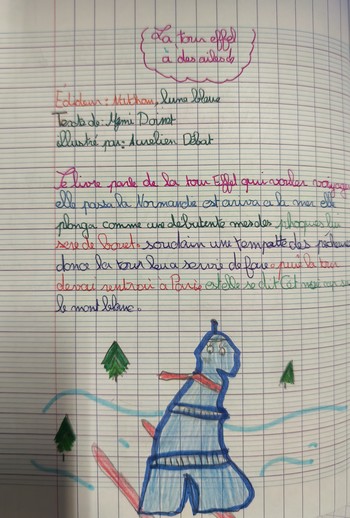 La tour effel
à des ailes de
Editeur: Nathan, lune bleue
Texte de: Mymi Doinet
illustré par: Aurélien Débat
Le livre parle de la tour Effel qui vouler voyager
elle passa la Normandie est ariva a la mer elle
plonga comme une débutente mes des phoques lui
serve de boquet soudain une tempatte des pécheurs
donc la tour leur a servie de fare puis la tour
devai rentroir a Paris est elle se dit
le mont blanc..